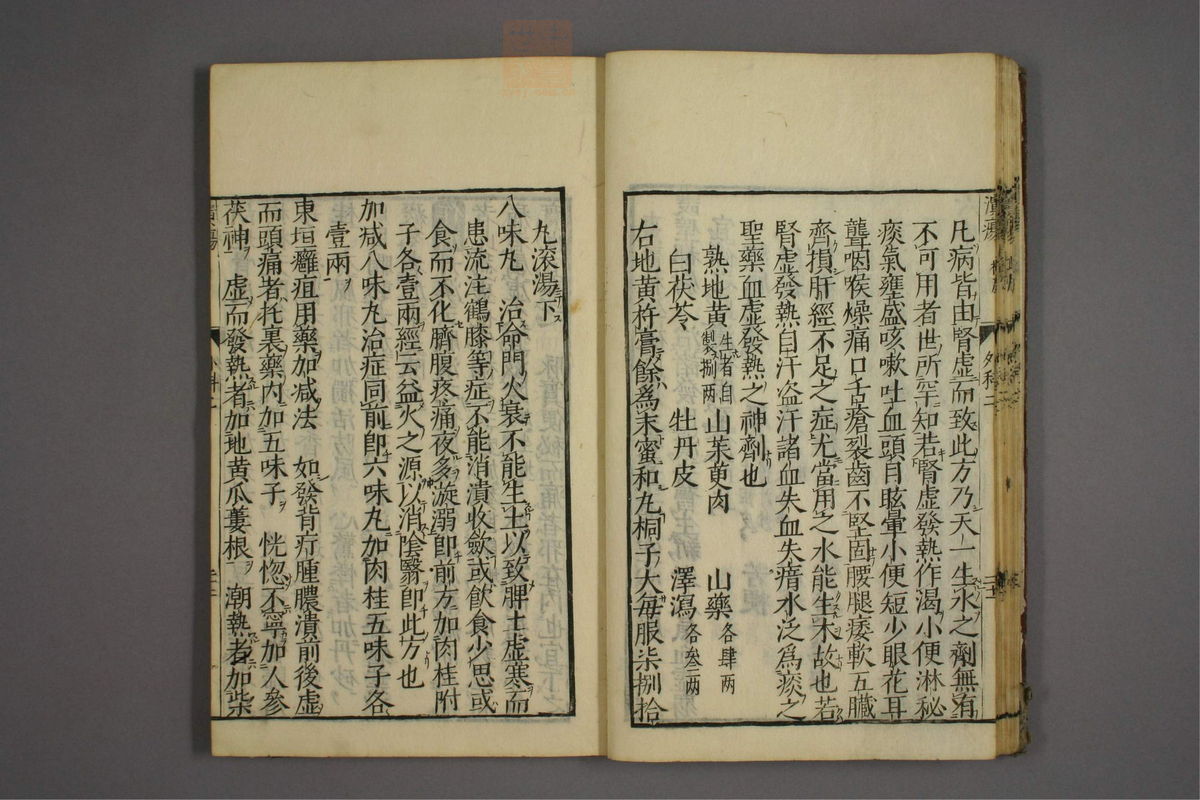 凡病皆由腎虛而致此方乃天一生水之劑無有
不可用者世所罕知若腎虛發熱作渴小便淋秘
痰氣壅盛咳嗽吐血頭目眩暈小便短少眼花耳
聾咽喉燥痛口舌瘡裂齒不堅固腰腿痿軟五臟
齊損肝經不足之症尤當用之水能生木故也若
腎虛發熱自汗盜汗諸血失血失瘖水泛爲痰之
聖藥血虛發熱之神劑也
熟地黃生者自製捌兩 山茱萸肉 山藥各肆兩
白茯苓 牡丹皮 澤瀉各叁兩
右地黃杵膏餘爲末蜜和丸桐子大每服柒捌拾
丸滾湯下
八味丸 治命門火衰不能生土以致脾土虛寒而
患流注鶴膝等症不能消潰收斂或飲食少思或
食而不化臍腹疼痛夜多漩溺卽前方加肉桂附
子各壹兩經云益火之源以消陰翳卽此方也
加減八味丸治症同前卽六味丸加肉桂五味子各
壹兩
東垣癰疽用藥加減法 如發背疔腫膿潰前後虛
而頭痛者托裏藥內加五味子 恍惚不寧加人參
茯神 虛而發熱者加地黃瓜蔞根 潮熱者加柴